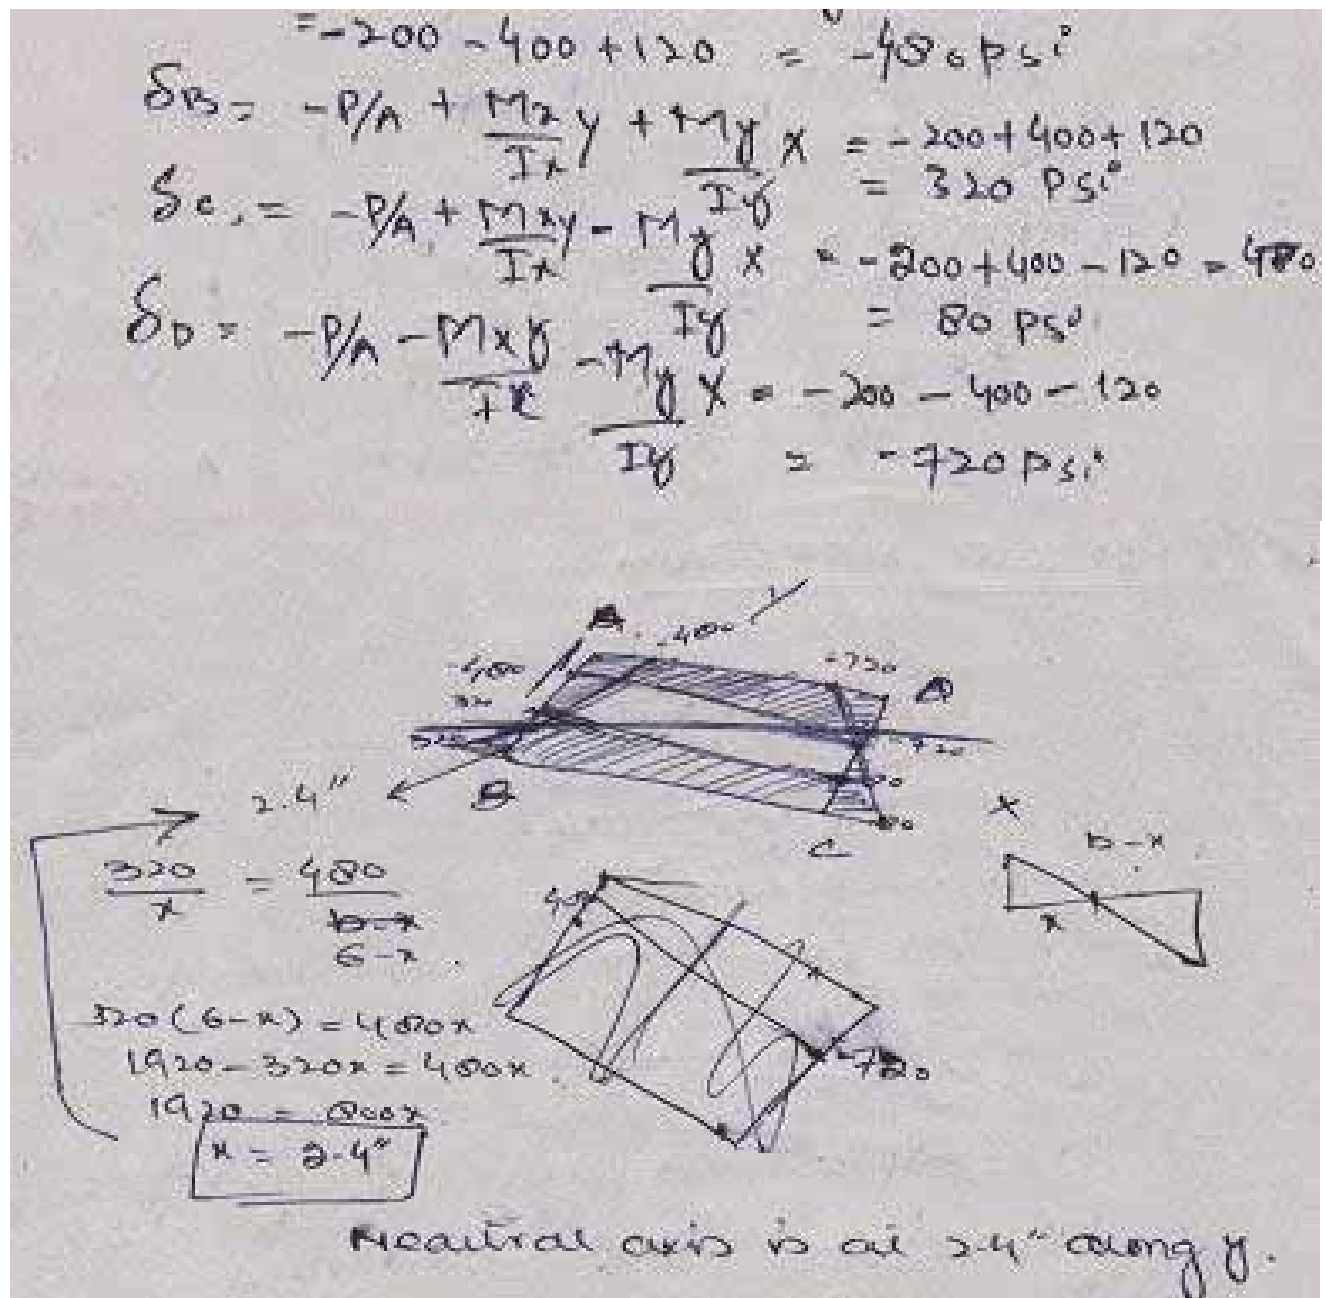 = -200 - 400 + 120 = -480 psi
δB = -P/A + Mx/Ix y + My/Iy x = -200 + 400 + 120
= 320 psi
δc = -P/A + Mxy/Ix - My/Iy x = -200 + 400 - 120 = 480
= 80 psi
δD = -P/A - Mxy/Ix - My/Iy x = -200 - 400 - 120
= -720 psi
A
-480
-480
-720
D
320
320
720
80
B
80
C
2.4"
320/x = 480/b-x
6-x
x
b-x
x
480
320(6-x) = 480x
1920 - 320x = 480x
-720
1920 = 800x
x = 2.4"
Neautral axis is at 2.4" along y.